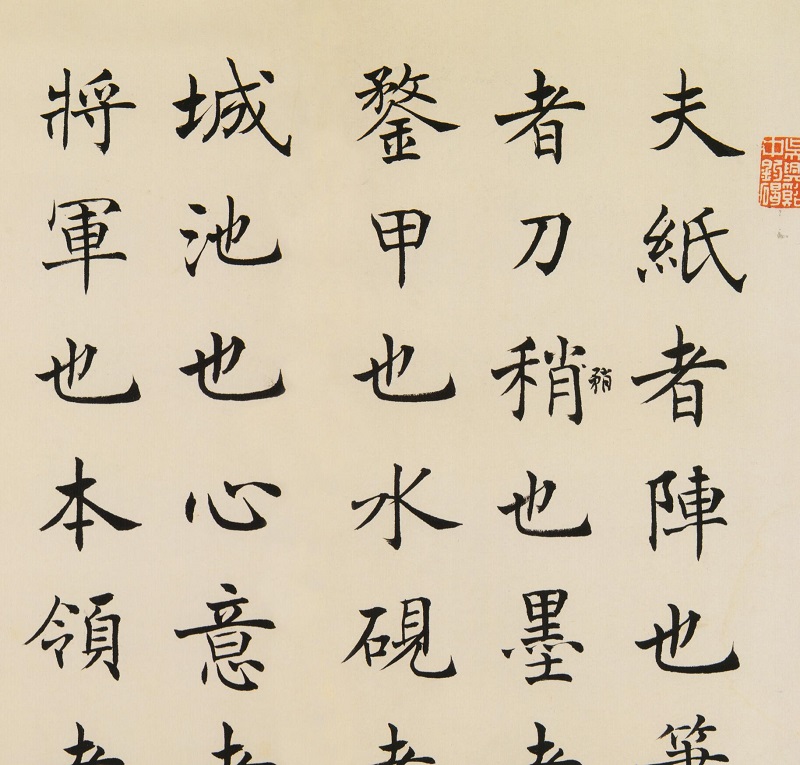 夫紙者陣也筆
者刀稍矟也墨者
鍪甲也水硯者
城池也心意者
將軍也本領者